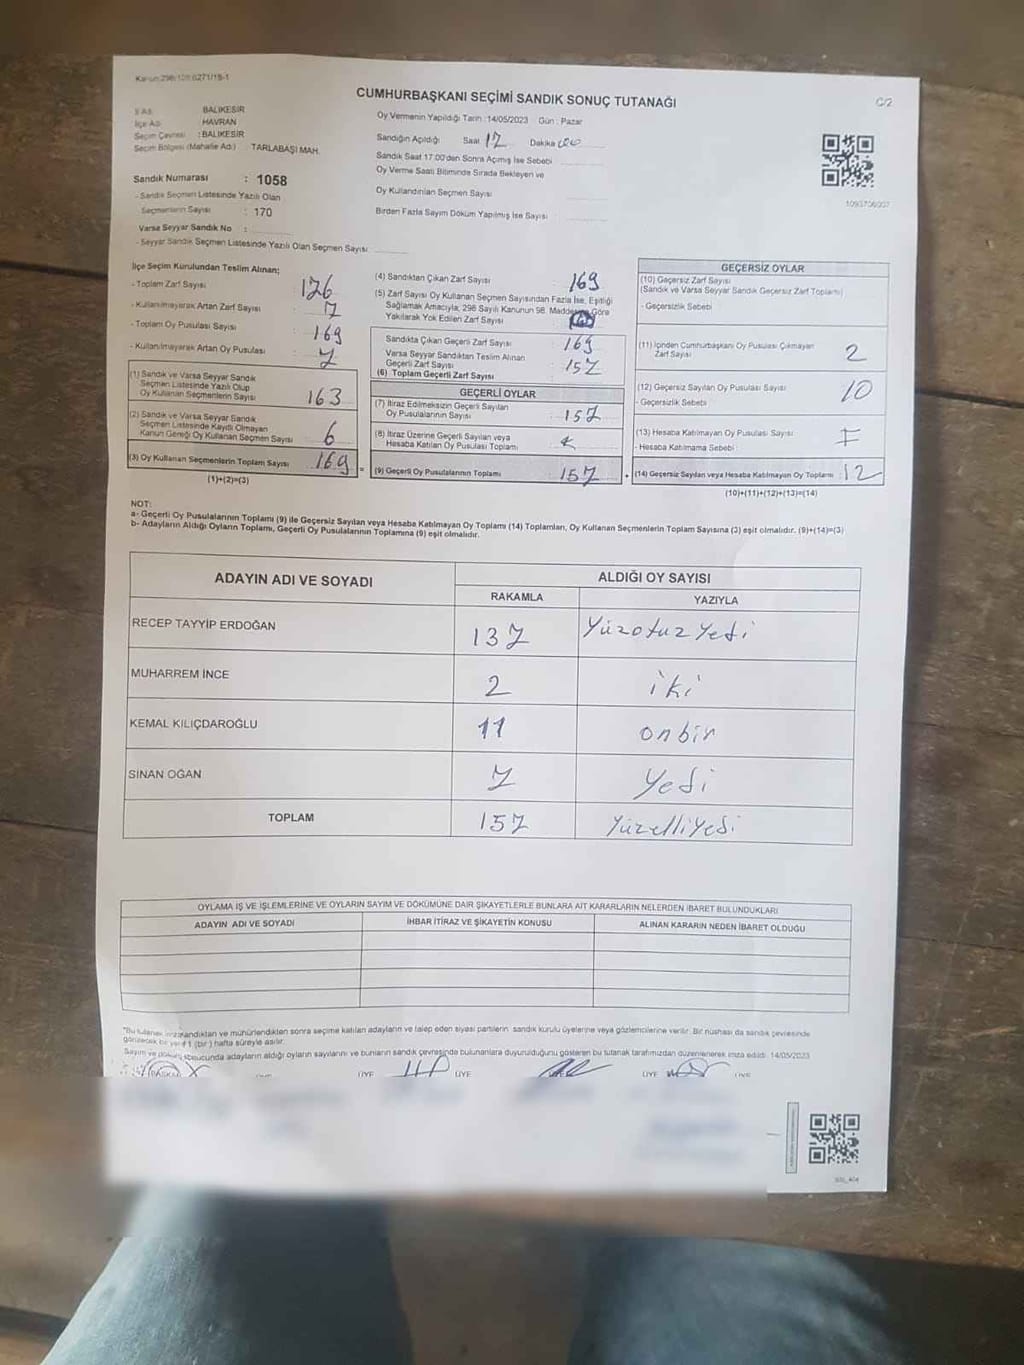 Kanun:298/105,6271/18-1
CUMHURBAŞKANI SEÇİMİ SANDIK SONUÇ TUTANAĞI
C/2
İl Adı : BALIKESİR
İlçe Adı : HAVRAN
Seçim Çevresi : BALIKESİR
Seçim Bölgesi (Mahalle Adı) : TARLABAŞI MAH.
Sandık Numarası : 1058
- Sandık Seçmen Listesinde Yazılı Olan
Seçmenlerin Sayısı : 170
Varsa Seyyar Sandık No :
- Seyyar Sandık Seçmen Listesinde Yazılı Olan Seçmen Sayısı
Oy Vermenin Yapıldığı Tarih :14/05/2023 Gün : Pazar
Sandığın Açıldığı Saat 17 Dakika
Sandık Saat 17:00'den Sonra Açılmış İse Sebebi
Oy Verme Saati Bitiminde Sırada Bekleyen ve
Oy Kullandırılan Seçmen Sayısı
Birden Fazla Sayım Döküm Yapılmış İse Sayısı
1093706007
İlçe Seçim Kurulundan Teslim Alınan;
- Toplam Zarf Sayısı : 176
- Kullanılmayarak Artan Zarf Sayısı : 7
- Toplam Oy Pusulası Sayısı : 169
- Kullanılmayarak Artan Oy Pusulası : 7
(1) Sandık ve Varsa Seyyar Sandık
Seçmen Listesinde Yazılı Olup
Oy Kullanan Seçmenlerin Sayısı : 163
(2) Sandık ve Varsa Seyyar Sandık
Seçmen Listesinde Kayıtlı Olmayan
Kanun Gereği Oy Kullanan Seçmen Sayısı : 6
(3) Oy Kullanan Seçmenlerin Toplam Sayısı : 169
(1)+(2)=(3)
(4) Sandıktan Çıkan Zarf Sayısı 169
(5) Zarf Sayısı Oy Kullanan Seçmen Sayısından Fazla İse, Eşitliği
Sağlamak Amacıyla, 298 Sayılı Kanunun 98. Maddesine Göre
Yakılarak Yok Edilen Zarf Sayısı
Sandıkta Çıkan Geçerli Zarf Sayısı : 169
Varsa Seyyar Sandıktan Teslim Alınan
Geçerli Zarf Sayısı : 157
(6) Toplam Geçerli Zarf Sayısı
GEÇERLİ OYLAR
(7) İtiraz Edilmeksizin Geçerli Sayılan
Oy Pusulalarının Sayısı : 157
(8) İtiraz Üzerine Geçerli Sayılan veya
Hesaba Katılan Oy Pusulası Toplamı
(9) Geçerli Oy Pusulalarının Toplamı 157
GEÇERSİZ OYLAR
(10) Geçersiz Zarf Sayısı
(Sandık ve Varsa Seyyar Sandık Geçersiz Zarf Toplamı)
- Geçersizlik Sebebi
(11) İçinden Cumhurbaşkanı Oy Pusulası Çıkmayan
Zarf Sayısı 2
(12) Geçersiz Sayılan Oy Pusulası Sayısı 10
- Geçersizlik Sebebi
(13) Hesaba Katılmayan Oy Pusulası Sayısı
- Hesaba Katılmama Sebebi
(14) Geçersiz Sayılan veya Hesaba Katılmayan Oy Toplamı 12
(10)+(11)+(12)+(13)=(14)
NOT:
a- Geçerli Oy Pusulalarının Toplamı (9) ile Geçersiz Sayılan veya Hesaba Katılmayan Oy Toplamı (14) Toplamları, Oy Kullanan Seçmenlerin Toplam Sayısına (3) eşit olmalıdır. (9)+(14)=(3)
b- Adayların Aldığı Oyların Toplamı, Geçerli Oy Pusulalarının Toplamına (9) eşit olmalıdır.
ADAYIN ADI VE SOYADI ALDIĞI OY SAYISI
RAKAMLA YAZIYLA
RECEP TAYYİP ERDOĞAN 137 Yüzotuzyedi
MUHARREM İNCE 2 iki
KEMAL KILIÇDAROĞLU 11 onbir
SİNAN OĞAN 7 Yedi
TOPLAM 157 Yüzelliyedi
OYLAMA İŞ VE İŞLEMLERİNE VE OYLARIN SAYIM VE DÖKÜMÜNE DAİR ŞİKAYETLERLE BUNLARA AİT KARARLARIN NELERDEN İBARET BULUNDUKLARI
ADAYIN ADI VE SOYADI İHBAR İTİRAZ VE ŞİKAYETİN KONUSU ALINAN KARARIN NEDEN İBARET OLDUĞU
*Bu tutanak imzalandıktan ve mühürlendikten sonra seçime katılan adayların ve talep eden siyasi partilerin sandık kurulu üyelerine veya gözlemcilerine verilir. Bir nüshası da sandık çevresinde
görülecek bir yere 1 (bir) hafta süreyle asılır.
Sayım ve döküm sonucunda adayların aldığı oyların sayılarını ve bunların sandık çevresinde bulunanlara duyurulduğunu gösteren bu tutanak tarafımızdan düzenlenerek imza edildi. 14/05/2023
BAŞKAN ÜYE ÜYE ÜYE ÜYE ÜYE